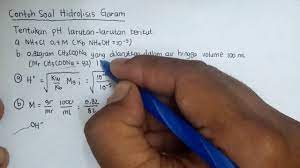 Contoh Soal Hidrolisis Garam
Tentukan pH larutan-larutan berikut
a. NH4Cl 0,1 M (Kb NH4OH = 10⁻⁵)
b. 0,82 gram CH3COONa yang dilarutkan dalam air hingga volume 100 mL
(Mr CH3COONa = 82)
(a) H⁺ = √Kw/Kb M
(b) M = gr/mr 1000/mL = 0,82/82
OH⁻